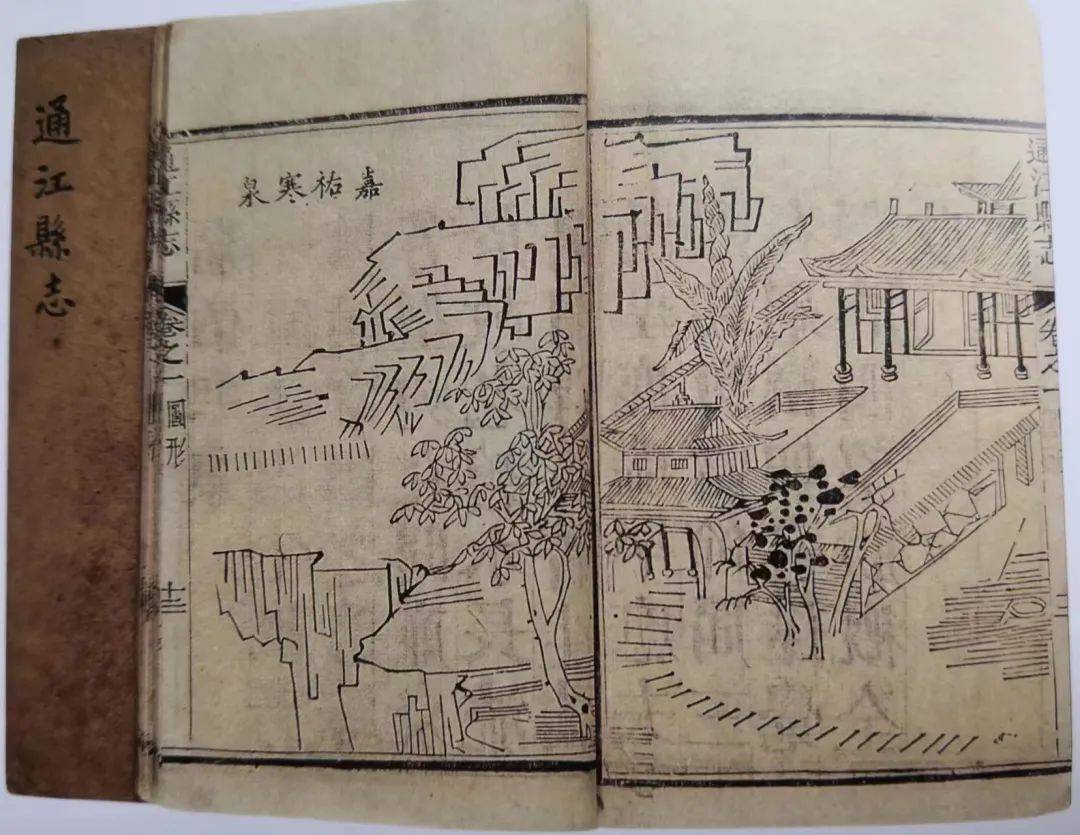 通江縣志
嘉祐寒泉
通江縣志
卷之一
圖形
十三
通江縣志
卷之一